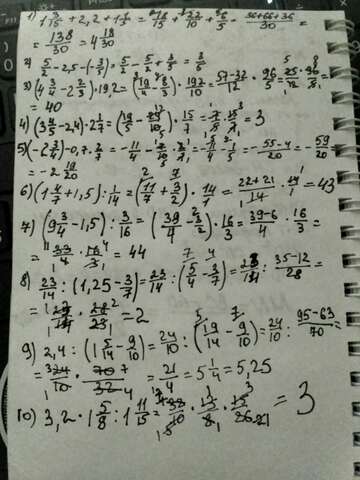 1) 1 3/15 + 2,2 + 1 1/5 = 18/15 + 22/10 + 6/5 = 36+66+36/30 =
= 138/30 = 4 18/30
2) 5/2 - 2,5 - (-3/5) = 5/2 - 5/2 + 3/5 = 3/5
3) (4 3/4 - 2 2/3) · 19,2 = (19/4 - 8/3) · 192/10 = 57-32/12 · 96/5 = 25/12 · 96/5 =
= 40
4) (3 4/5 - 2,4) · 2 1/7 = (19/5 - 24/10) · 15/7 = 7/5 · 15/7 = 3
5) (-2 3/4) - 0,7 · 2/7 = -11/4 - 7/10 · 2/7 = -11/4 - 1/5 = -55-4/20 = -59/20 =
= -2 19/20
6) (1 4/7 + 1,5) : 1/14 = (11/7 + 3/2) · 14/1 = 22+21/14 · 14/1 = 43
7) (9 3/4 - 1,5) : 3/16 = (39/4 - 3/2) · 16/3 = 39-6/4 · 16/3 =
= 33/4 · 16/3 = 44
8) 23/14 : (1,25 - 3/7) = 23/14 : (5/4 - 3/7) = 23/14 : 35-12/28 =
= 23/14 · 28/23 = 2
9) 2,4 : (1 5/14 - 9/10) = 24/10 : (19/14 - 9/10) = 24/10 : 95-63/70 =
= 24/10 · 70/32 = 21/4 = 5 1/4 = 5,25
10) 3,2 · 1 5/8 : 1 11/15 = 32/10 · 13/8 · 15/26 = 3